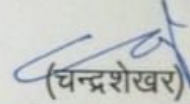 (चन्द्रशेखर)